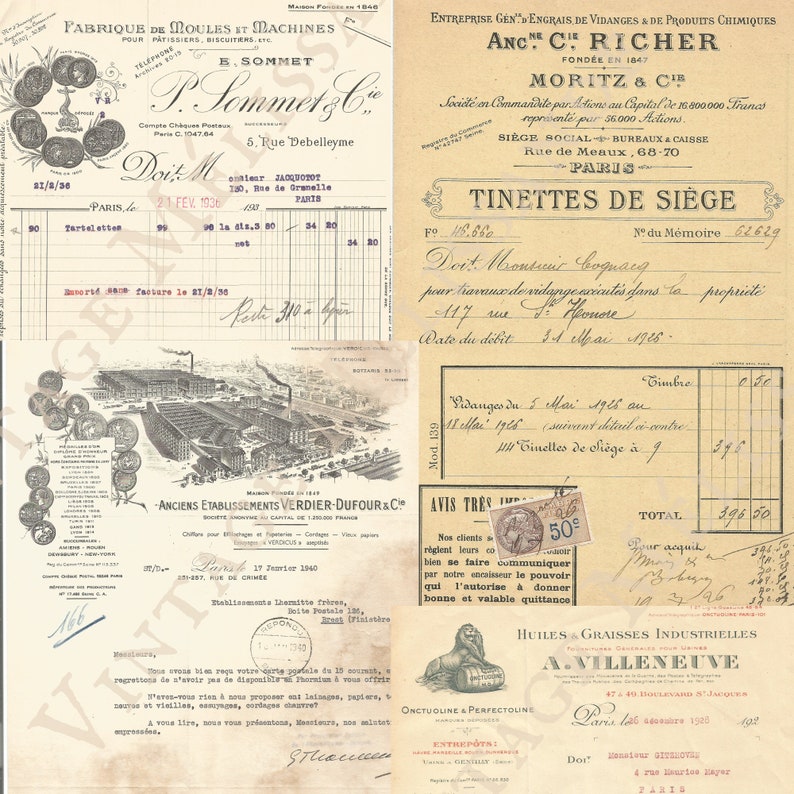 MAISON FONDÉE EN 1846
FABRIQUE DE MOULES ET MACHINES
POUR PÂTISSIERS, BISCUITIERS, ETC.
TÉLÉPHONE
Archives 20-15
E. SOMMET
P. Sommet & Cie
SUCCESSEURS
Compte Chèques Postaux
Paris C. 1047.64
5, Rue Debelleyme
MARQUE DÉPOSÉE
V R
2
Doit M onsieur JACQUOTOT
130, Rue de Grenelle
PARIS
21/2/36
PARIS, le 21 FEV 1936 193
90 Tartelettes 99 98 la diz.3 80 34 20
net 34 20
Emporté sans facture le 21/2/36
ENTREPRISE GÉNle D'ENGRAIS DE VIDANGES & DE PRODUITS CHIMIQUES
ANCNE CIE RICHER
FONDÉE EN 1847
MORITZ & CIE
Société en Commandite par Actions au Capital de 16.800.000 Francs
représenté par 56.000 Actions.
Registre du Commerce
No 42747 Seine.
SIÈGE SOCIAL - BUREAUX & CAISSE
Rue de Meaux, 68-70
PARIS
TINETTES DE SIÈGE
Fo 46.660 No du Mémoire 62629
Doit Monsieur Cognacq
pour travaux de vidange exécutés dans la propriété
117 rue St Honore
Date du débit 31 Mai 1926
Timbre 0 50
Vidanges du 5 Mai 1926 au
18 Mai 1926 (suivant détail ci-contre)
44 Tinettes de Siège à 9 396
Mod. 139
TOTAL 396 50
AVIS TRÈS
50c
Nos clients
règlent leurs
se faire communiquer
par notre encaisseur le pouvoir
qui l'autorise à donner
bonne et valable quittance
Pour acquit
TÉLÉPHONE
BOTZARIS
MAISON FONDÉE EN 1849
ANCIENS ETABLISSEMENTS VERDIER-DUFOUR & CIE
SOCIÉTÉ ANONYME AU CAPITAL DE 1.250.000 FRANCS
Chiffons pour Effilochages et Papeteries - Cordages - Vieux papiers
Essuyages « VERDICUS » aseptisés
MÉDAILLES D'OR
DIPLÔME D'HONNEUR
GRAND PRIX
EXPOSITIONS
SUCCURSALES
AMIENS - ROUEN
DEWSBURY - NEW-YORK
ST/D.- Paris le 17 Janvier 1940
231-257, RUE DE CRIMÉE
166
Etablissements Lhermitte frères,
Boite Postale 126,
Brest (Finistère
Messieurs,
Nous avons bien reçu votre carte postale du 15 courant, e
regrettons de n'avoir pas de disponible en Phormium à vous offrir
N'avez-vous rien à nous proposer en: lainages, papiers, t
neuves et vieilles, essuyages, cordages chanvre?
A vous lire, nous vous présentons, Messieurs, nos saluta
empressées.
HUILES & GRAISSES INDUSTRIELLES
FOURNITURES GÉNÉRALES POUR USINES
A. VILLENEUVE
47 & 49, BOULEVARD ST JACQUES
ONCTUOLINE
ONCTUOLINE & PERFECTOLINE
MARQUES DÉPOSÉES
ENTREPÔTS:
USINE À GENTILLY (SEINE)
Paris, le 26 décembre 1928 192
DOIT Monsieur GITENOVER
4 rue Maurice Mayer
PARIS